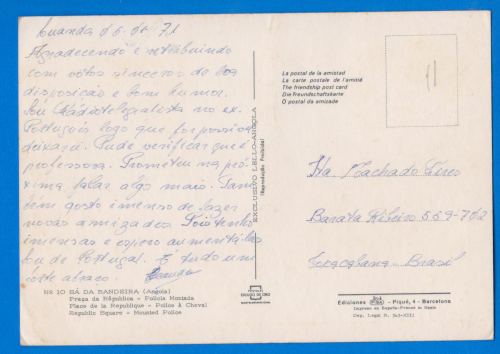 Luanda, 06-04-71
Agradecendo e retribuindo
com votos sinceros de boa
disposição e bom humor.
Sou Rádiotelegrafista no ex.
Português logo que for possivel
deixarei. Pude verificar que é
professora. Prometeu na pró-
xima falar algo mais. Tam
bém gosto imenso de fazer
novas amizades. Pois tenho
imensas e espero aumentá-las
Sou de Portugal. E tudo um
forte abraço.
Nº 10 SÁ DA BANDEIRA (Angola)
Praça da República - Polícia Montada
Place de la Republique - Police à Cheval
Republic Square - Mounted Police
EXCLUSIVO LELLO-ANGOLA
(Reprodução Proibida)
La postal de la amistad
La carte postale de l'amitié
The friendship post card
Die Freundschaftskarte
O postal da amizade
Machado
Barata Ribeiro 559-702
Copacabana - Brasil
Ediciones - Piqué, 4 - Barcelona
Impreso en España-Printed in Spain
Dep. Legal B.